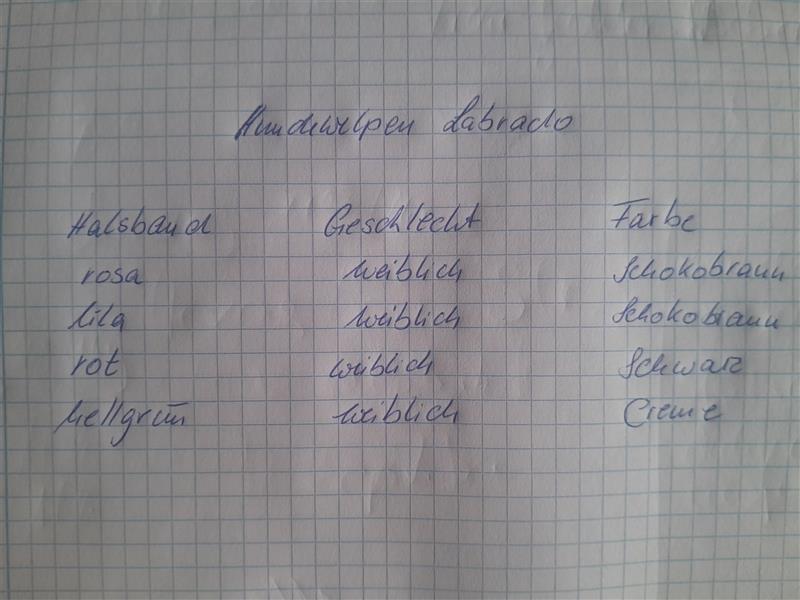 Hundewelpen Labrado
Halsband Geschlecht Farbe
rosa weiblich Schokobraun
lila weiblich Schokobraun
rot weiblich Schwarz
hellgrün weiblich Creme